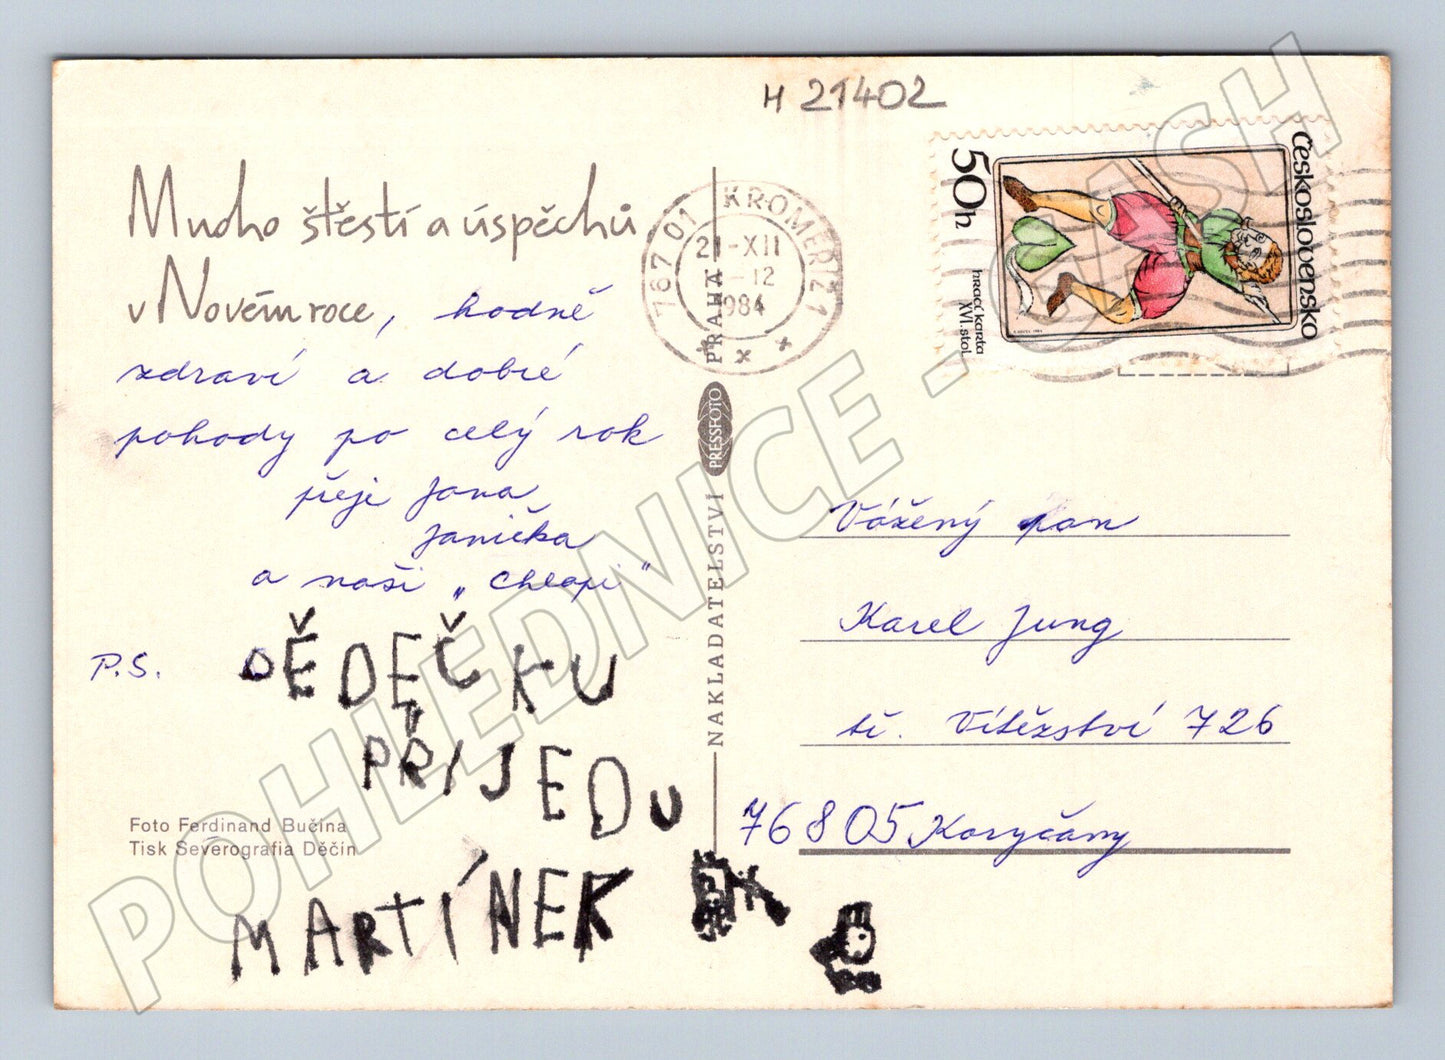 H 21402
Mnoho štěstí a úspěchů
v Novém roce, hodně
zdraví a dobré
pohody po celý rok
přeje Jana
Janička
a naši „chlapi"
P.S. DĚDEČKU
PŘIJEDU
MARTÍNEK
Foto Ferdinand Bučina
Tisk Severografia Děčín
NAKLADATELSTVÍ PRESSFOTO PRAHA
767 01 KROMĚŘÍŽ 1
21-XII
-12
1984
Československo
50h
hrací karta
XVI. stol.
Vážený pan
Karel Jung
tř. Vítězství 726
76805 Koryčany
POHLEDNICE - CASH